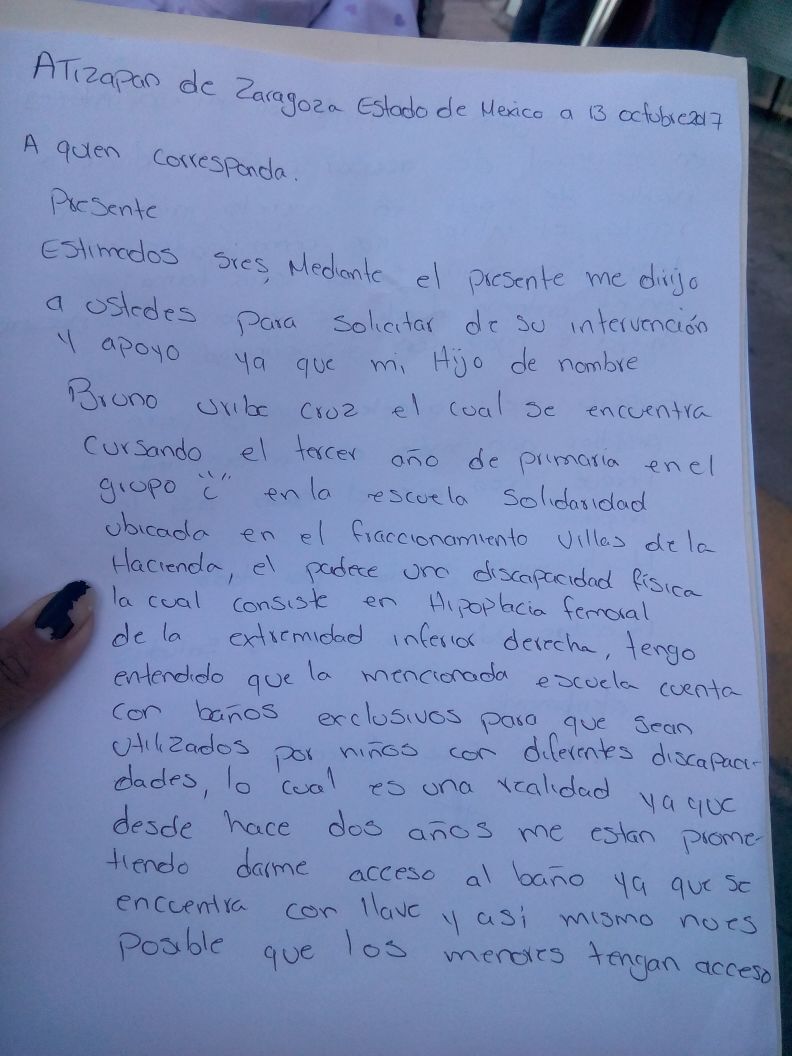 Atizapan de Zaragoza Estado de Mexico a 13 octubre 2017
A quien corresponda.
Presente
Estimados sres, Mediante el presente me dirijo
a ustedes para solicitar de su intervención
y apoyo ya que mi Hijo de nombre
Bruno uribe cruz el cual se encuentra
cursando el tercer año de primaria en el
grupo "c" en la escuela Solidaridad
ubicada en el fraccionamiento Villas de la
Hacienda, el padece una discapacidad física
la cual consiste en Hipoplacia femoral
de la extremidad inferior derecha, tengo
entendido que la mencionada escuela cuenta
con baños exclusivos para que sean
utilizados por niños con diferentes discapaci-
dades, lo cual es una realidad ya que
desde hace dos años me estan prome-
tiendo darme acceso al baño ya que se
encuentra con llave y asi mismo no es
posible que los menores tengan acceso